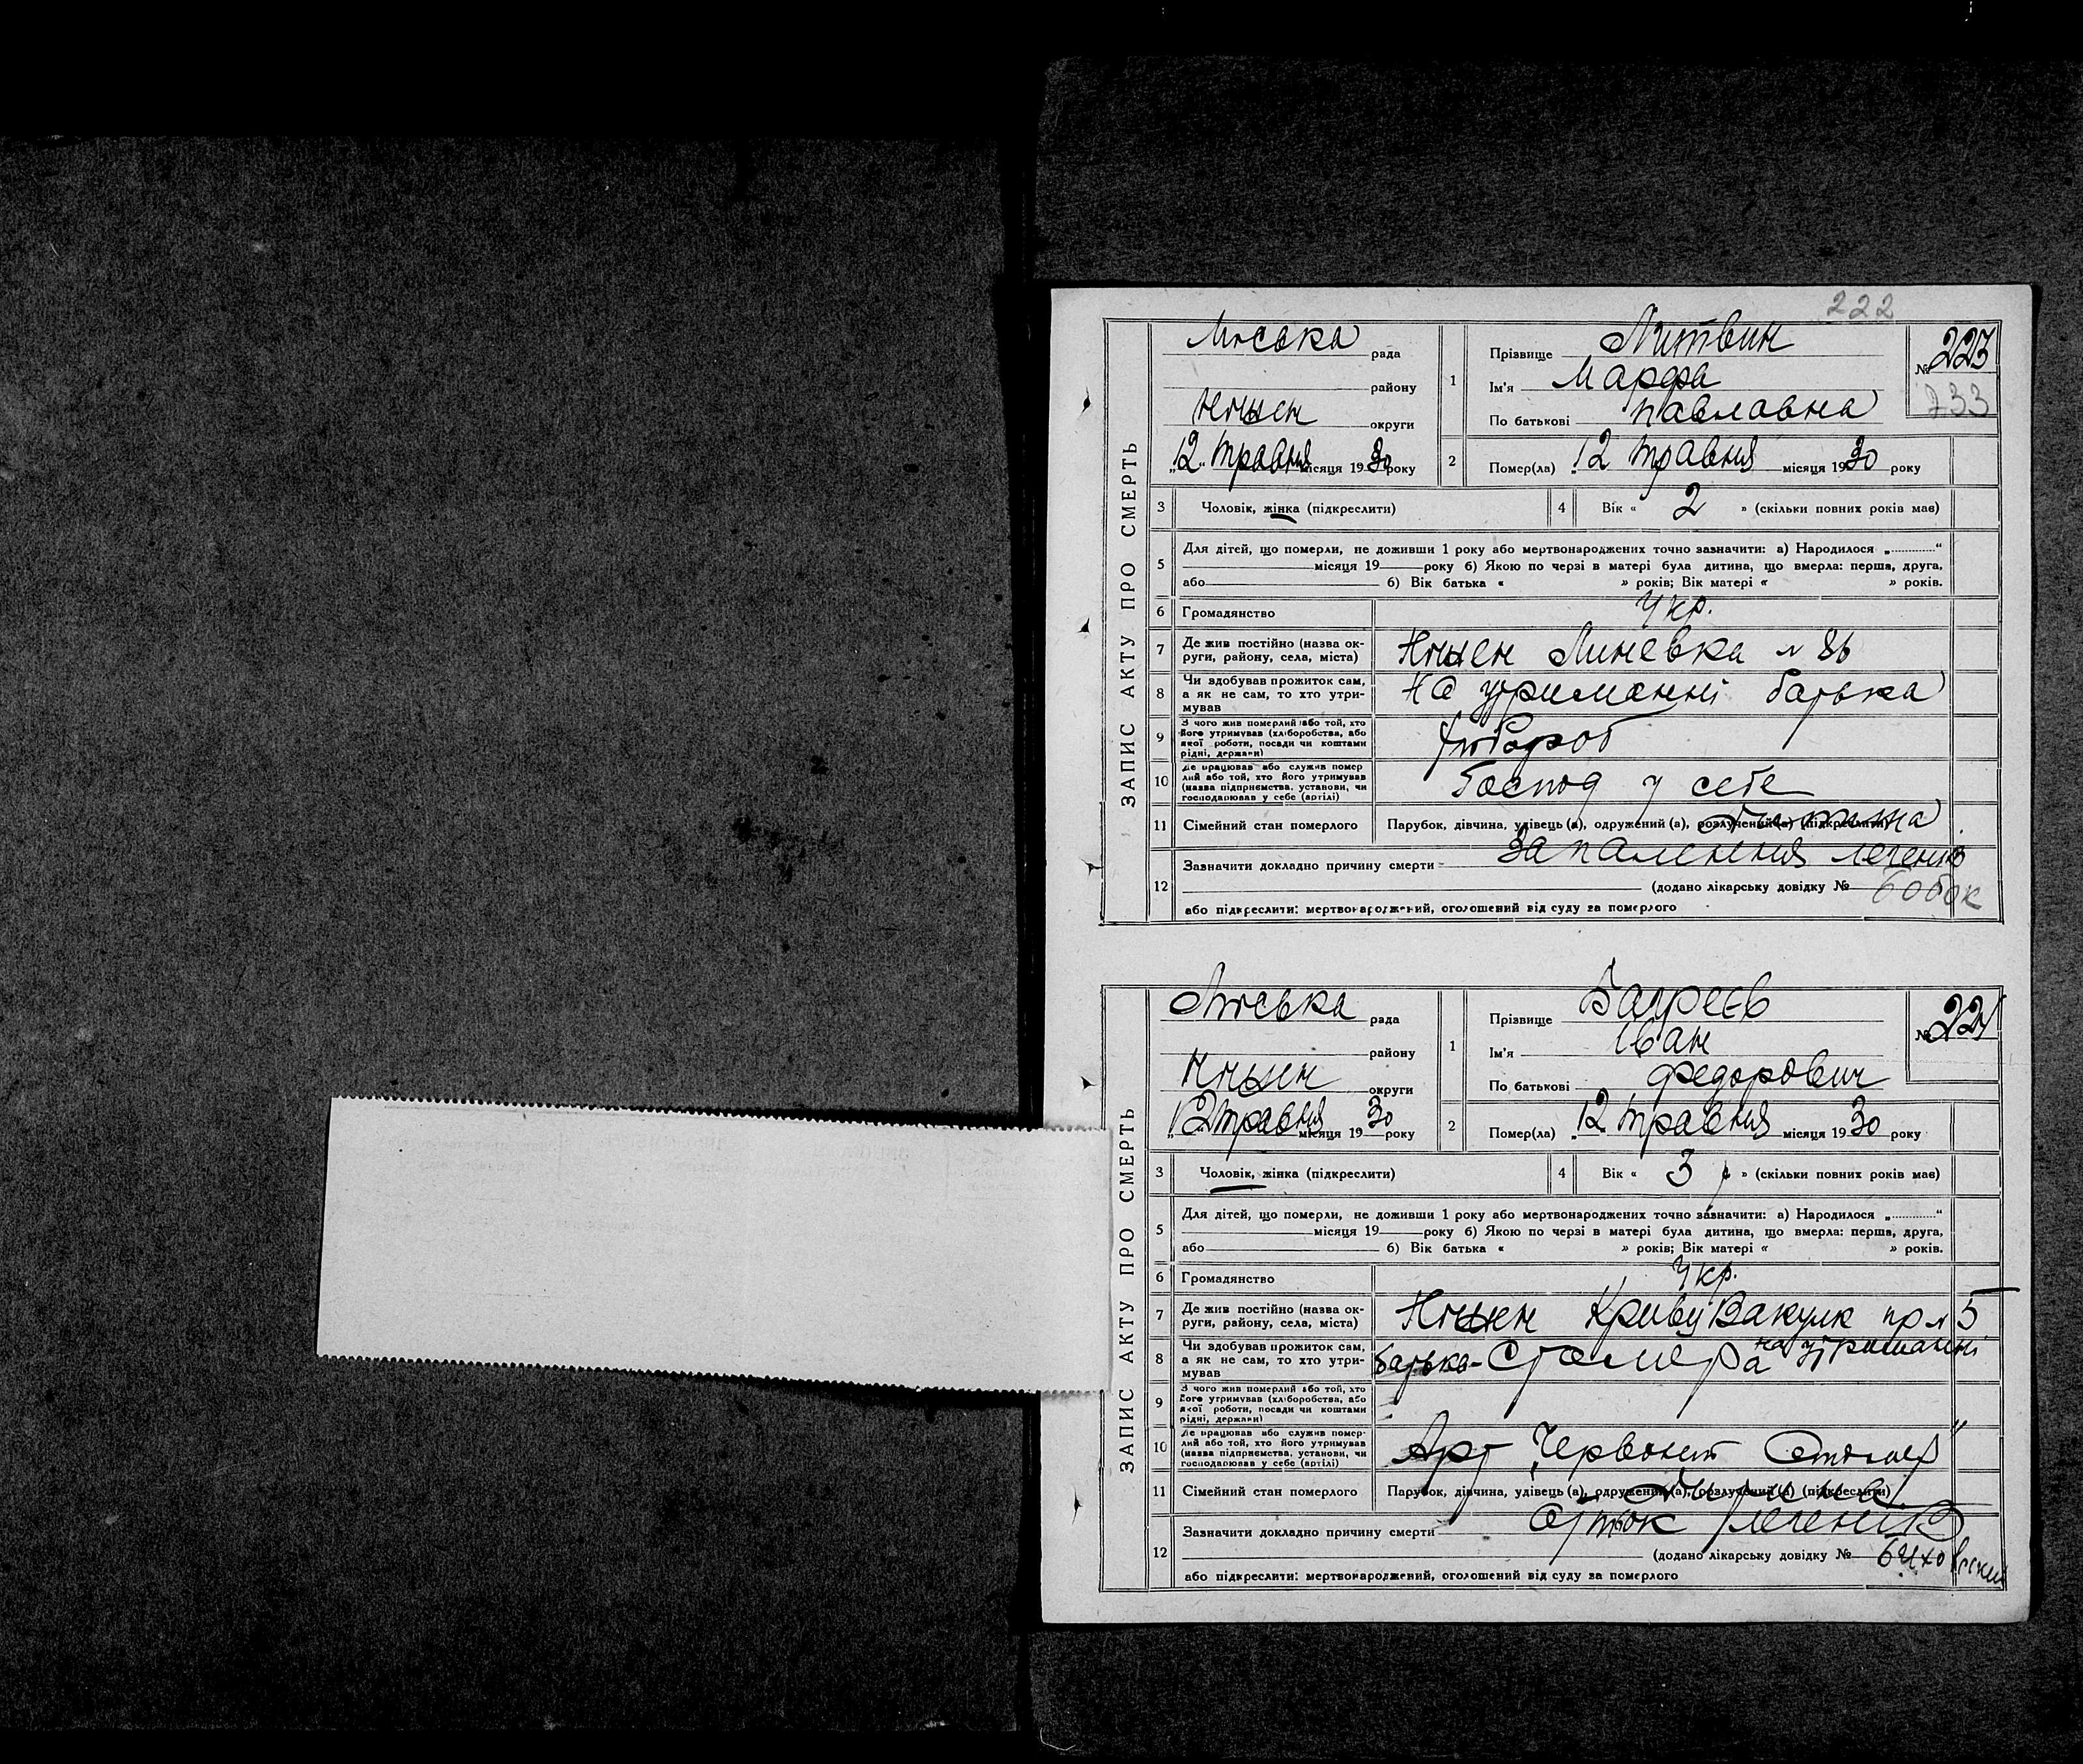 222
ЗАПИС АКТУ ПРО СМЕРТЬ
Міська рада
району
Ніжен округи
„12“ травня місяця 1930 року
1
Прізвище Литвин
Ім'я Марфа
По батькові Павлавна
№ 223
233
2 Помер(ла) 12 травня місяця 1930 року
3 Чоловік, жінка (підкреслити)
4 Вік « 2 » (скільки повних років має)
5 Для дітей, що померли, не доживши 1 року або мертвонароджених точно зазначити: а) Народилося „..........“
місяця 19 року б) Якою по черзі в матері була дитина, що вмерла: перша, друга,
або б) Вік батька « » років; Вік матері « » років.
6 Громадянство Укр.
7 Де жив постійно (назва округи, району, села, міста) Ніжен Линевка № 86
8 Чи здобував прожиток сам, а як не сам, то хто утримував На утриманні батька
9 З чого жив померлий або той, хто його утримував (хліборобства, або якої роботи, посади чи коштами рідні, держави)
10 Де працював або служив померлий або той, хто його утримував (назва підприємства, установи, чи господарював у себе (артілі) Господ у себе
11 Сімейний стан померлого Парубок, дівчина, удівець (а), одружений (а), розлучений (а) (підкреслити) дитина
12 Зазначити докладно причину смерти Запалення легенів
(додано лікарську довідку № Бобок
або підкреслити: мертвонароджений, оголошений від суду за померлого
ЗАПИС АКТУ ПРО СМЕРТЬ
Міська рада
району
Ніжен округи
„12“ травня місяця 1930 року
1
Прізвище
Ім'я Іван
По батькові Федорович
№ 224
2 Помер(ла) 12 травня місяця 1930 року
3 Чоловік, жінка (підкреслити)
4 Вік « 3 » (скільки повних років має)
5 Для дітей, що померли, не доживши 1 року або мертвонароджених точно зазначити: а) Народилося „..........“
місяця 19 року б) Якою по черзі в матері була дитина, що вмерла: перша, друга,
або б) Вік батька « » років; Вік матері « » років.
6 Громадянство Укр.
7 Де жив постійно (назва округи, району, села, міста) Ніжен Вакулк 5
8 Чи здобував прожиток сам, а як не сам, то хто утримував батька- столяра на утриманні
9 З чого жив померлий або той, хто його утримував (хліборобства, або якої роботи, посади чи коштами рідні, держави)
10 Де працював або служив померлий або той, хто його утримував (назва підприємства, установи, чи господарював у себе (артілі) Арт „Червоний Столяр“
11 Сімейний стан померлого Парубок, дівчина, удівець (а), одружений (а), розлучений (а) (підкреслити) дитина
12 Зазначити докладно причину смерти легенів
(додано лікарську довідку № Биховський
або підкреслити: мертвонароджений, оголошений від суду за померлого